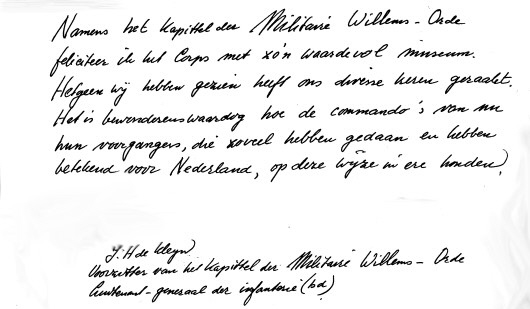 Namens het Kapittel der Militaire Willems-Orde
feliciteer ik het Corps met zo'n waardevol museum.
Hetgeen wij hebben gezien heeft ons diverse keren geraakt.
Het is bewonderenswaardig hoe de commando's van nu
hun voorgangers, die zoveel hebben gedaan en hebben
betekend voor Nederland, op deze wijze in ere houden.
J.H de Kleyn
Voorzitter van het Kapittel der Militaire Willems-Orde
Luitenant-generaal der infanterie (b.d)